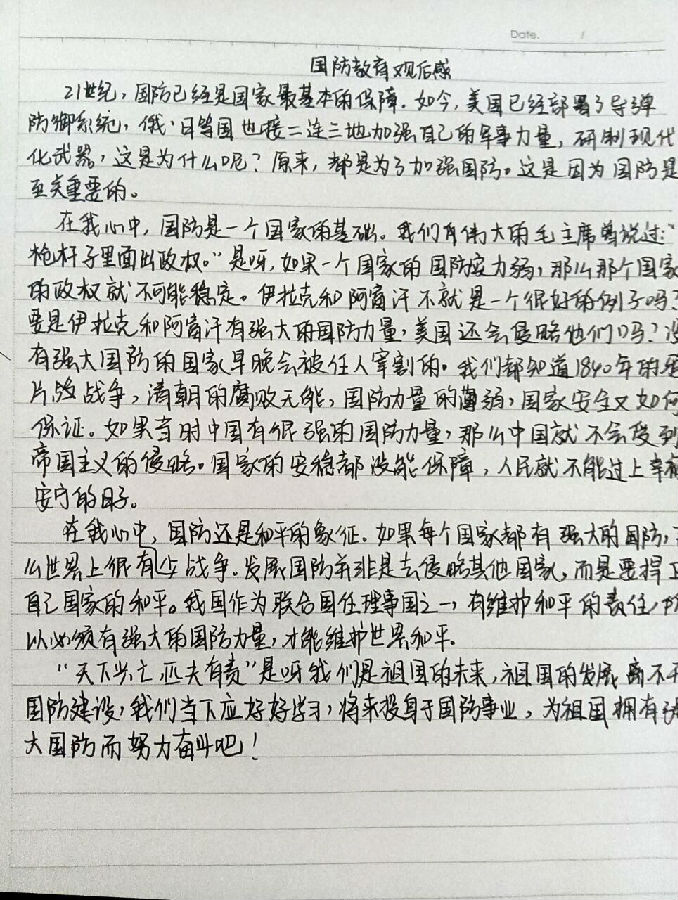 Date. /
国防教育观后感
21世纪，国防已经是国家最基本的保障。如今，美国已经部署了导弹
防御系统，俄、日等国也接二连三地加强自己的军事力量，研制现代
化武器，这是为什么呢？原来，都是为了加强国防。这是因为国防是
至关重要的。
在我心中，国防是一个国家的基础。我们有伟大的毛主席曾说过：“
枪杆子里面出政权。”是呀，如果一个国家的国防应力弱，那么那个国家
的政权就不可能稳定。伊拉克和阿富汗不就是一个很好的例子吗？
要是伊拉克和阿富汗有强大的国防力量，美国还会侵略他们吗？没
有强大国防的国家早晚会被任人宰割的。我们都知道1840年的鸦
片战争，清朝的腐败无能，国防力量的薄弱，国家安全又如何
保证。如果当时中国有很强的国防力量，那么中国就不会受到
帝国主义的侵略。国家的安稳都没能保障，人民就不能过上幸福
安宁的日子。
在我心中，国防还是和平的象征。如果每个国家都有强大的国防，
么世界上很有少战争。发展国防并非是去侵略其他国家，而是要捍卫
自己国家的和平。我国作为联合国任理事国之一，有维护和平的责任，所
以必须有强大的国防力量，才能维护世界和平。
“天下兴亡匹夫有责”是呀我们是祖国的未来，祖国的发展离不开
国防建设，我们当下应好好学习，将来投身于国防事业，为祖国拥有强
大国防而努力奋斗吧！